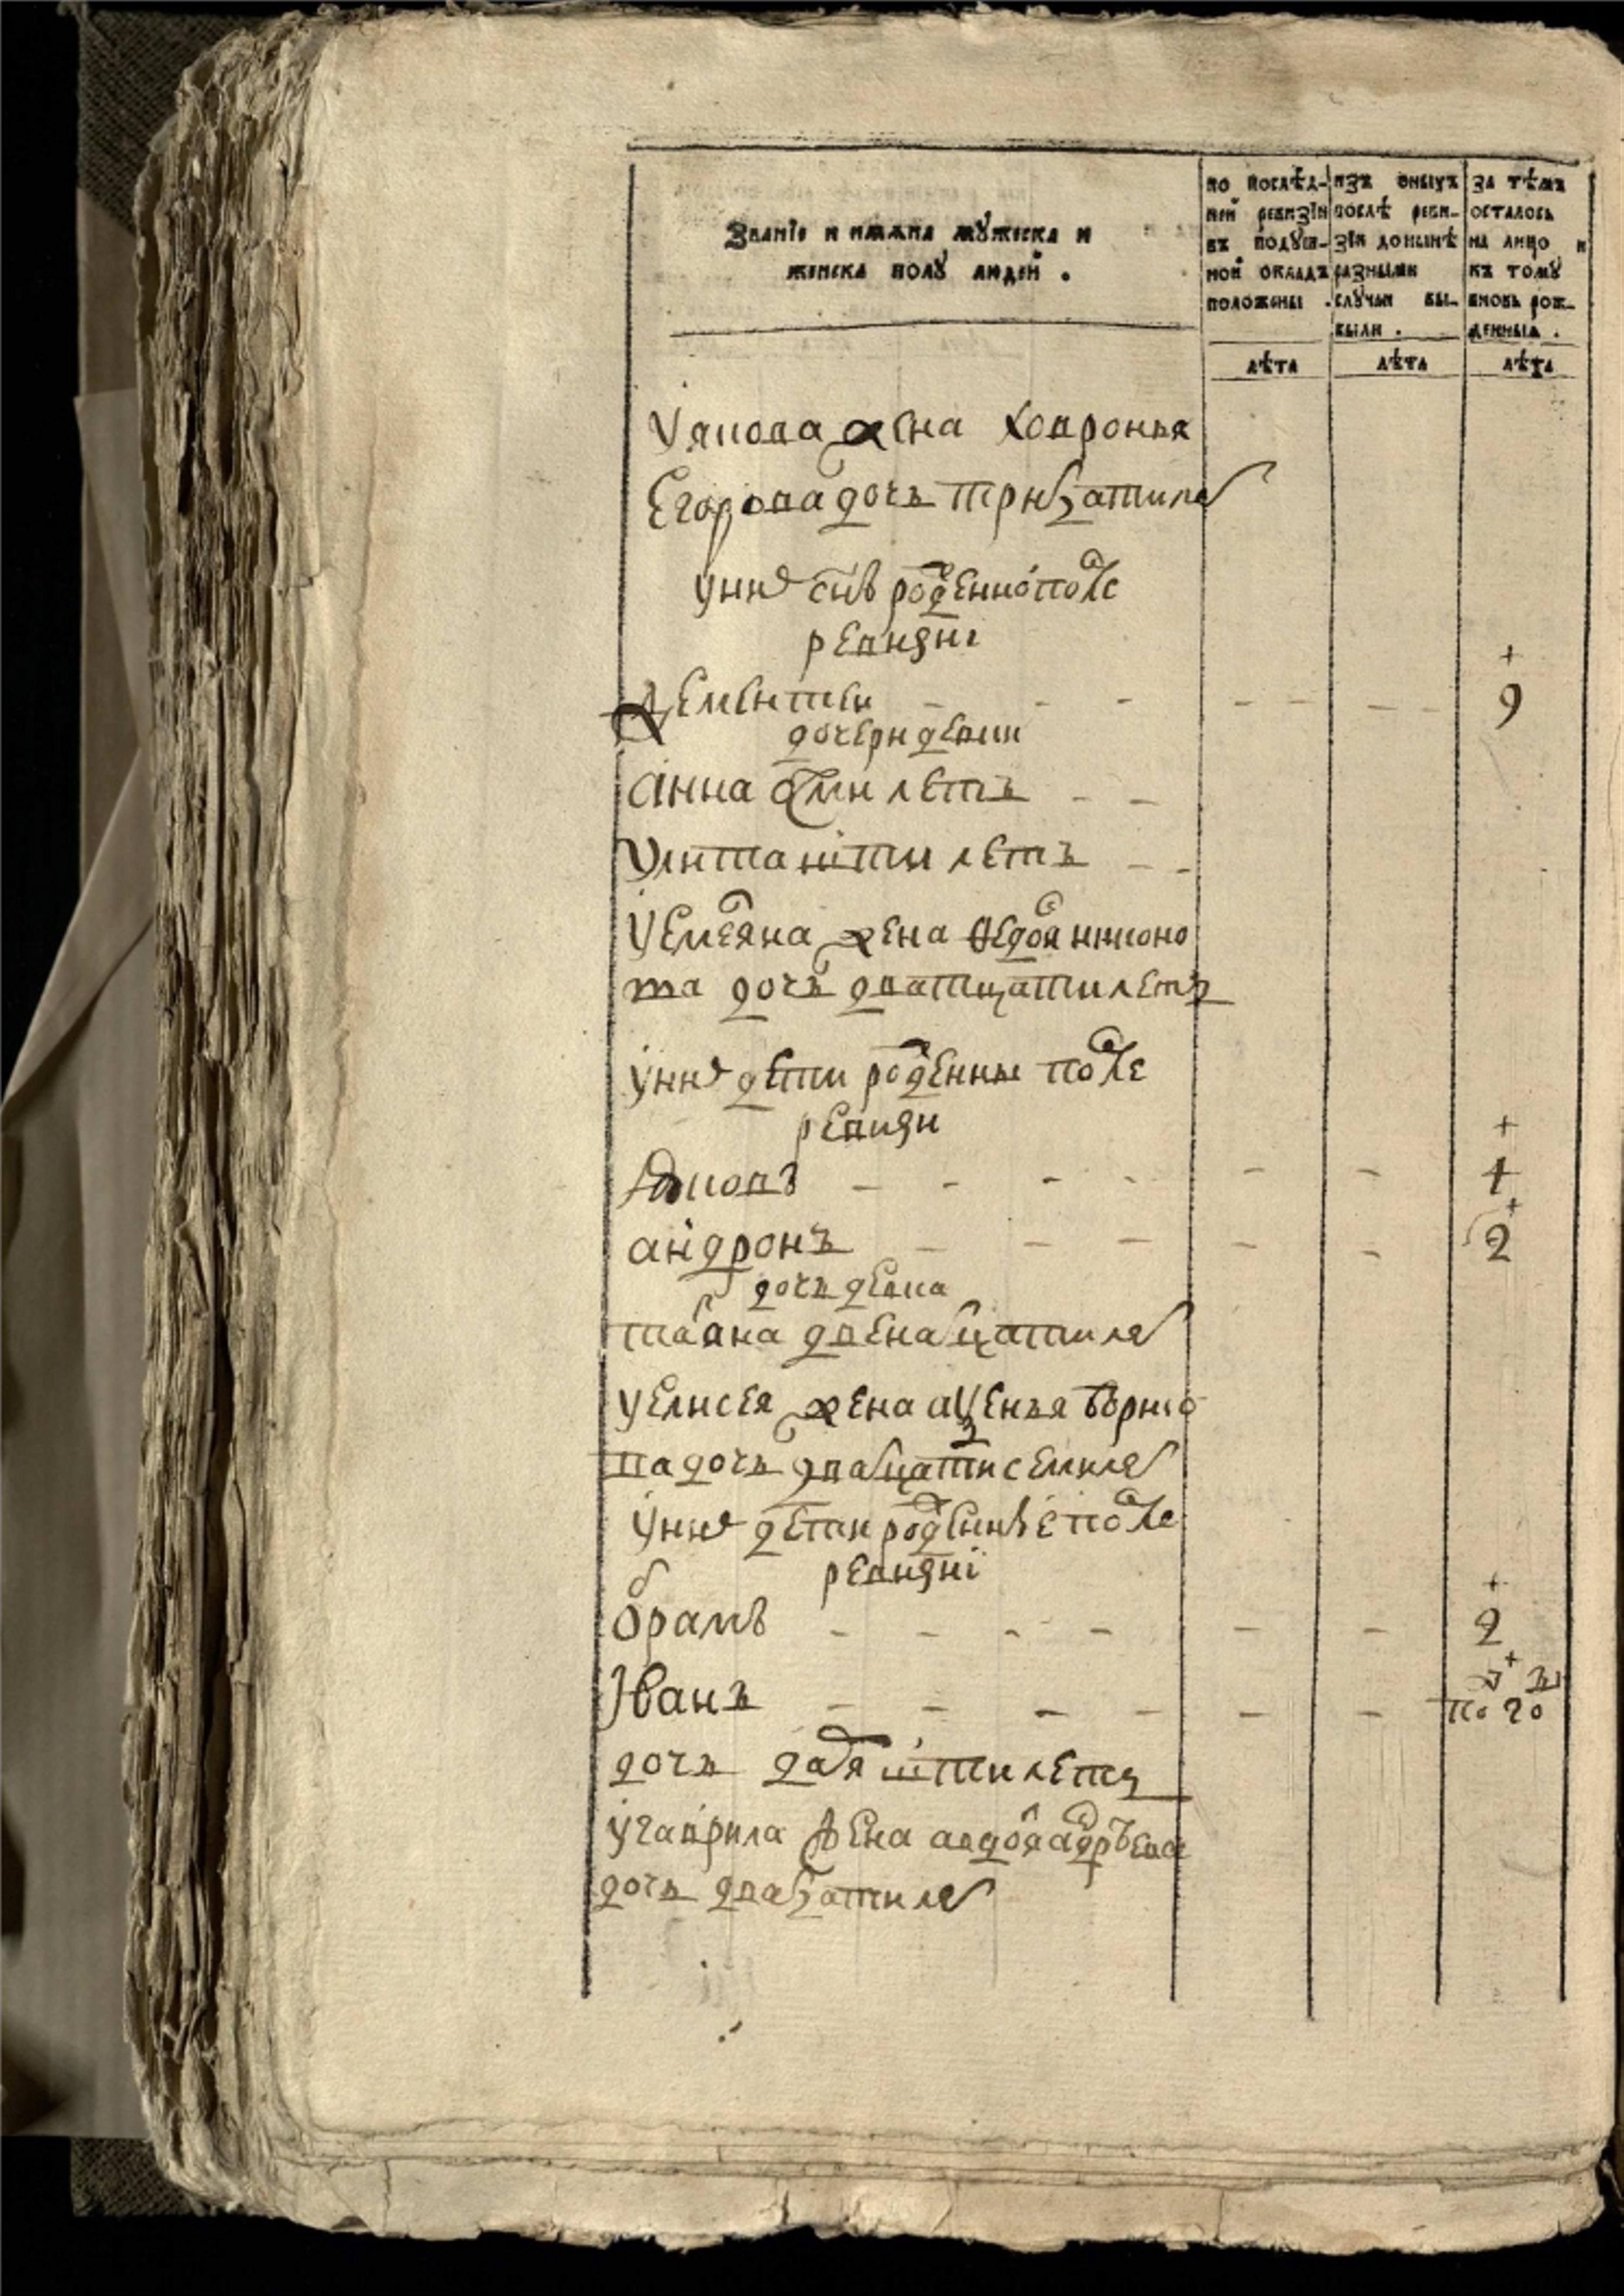 Званіе и имяна мужеска и
женска полу людей .
по послѣд-
ней ревизіи
въ подуш-
ной окладъ
положены .
лѣта
изъ оныхъ
послѣ реви-
зіи донынѣ
разными
случаи вы-
были .
лѣта
за тѣмъ
осталось
на лицо и
къ тому
вновь рож-
денныя .
лѣта
жена ховронья
Егорова дочь трицатилет
унеѣ снъ рожденной после
ревизиі
Дементеи - - - - - - - + 9
дочери девки
анна осми летъ - -
улита шти летъ - -
уемельяна жена федося никоно
ва дочь дватцатилетъ
унеѣ дети рожденны после
ревизи
- - - - - - + 1
андронъ - - - - - + 2
дочь девка
татьяна двенатцатилет
уелисея жена
ва дочь двадцатисемилет
унеѣ дети рожденные после
ревизиі
абрамъ - - - - - - + 2
Іванъ - - - - - - - +
по го
дочь дарья шти летъ
угаврила жена авдотья андрѣева
дочь двацатилет